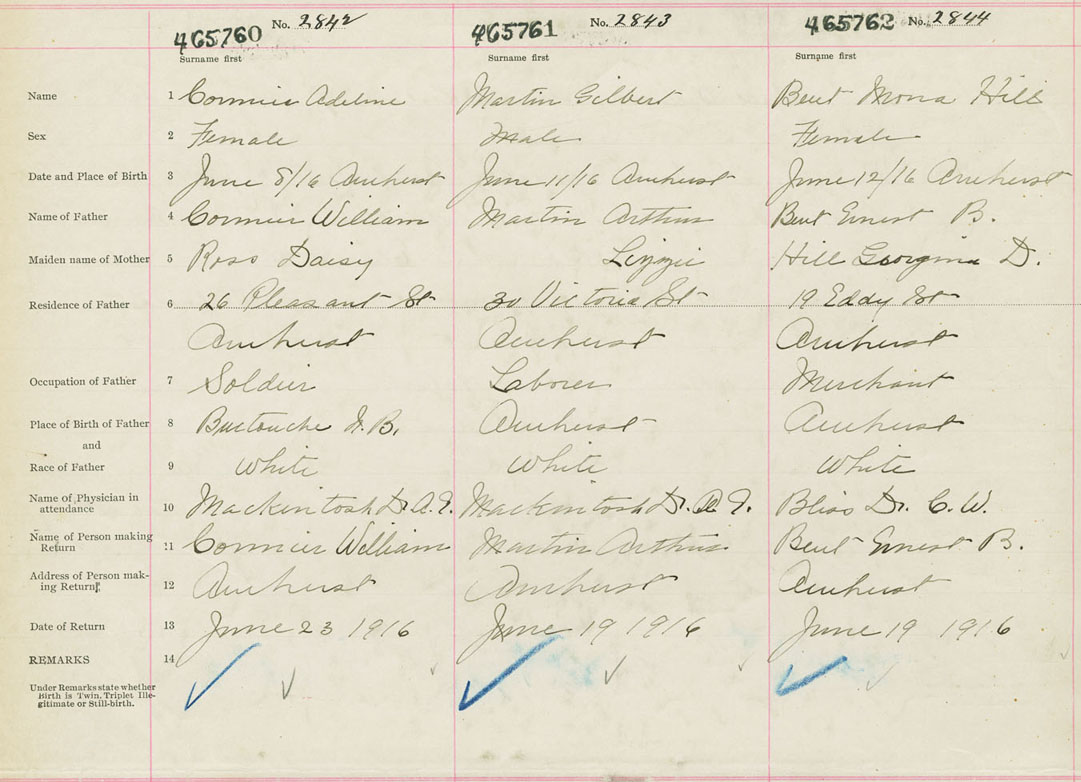 465760 No. 2842 465761 No. 2843 465762 No. 2844
Surname first Surname first Surname first
Name 1 Cormier Adeline Martin Gilbert Bent Mona Hill
Sex 2 Female Male Female
Date and Place of Birth 3 June 8/16 Amherst June 11/16 Amherst June 12/16 Amherst
Name of Father 4 Cormier William Martin Arthur Bent Ernest B.
Maiden name of Mother 5 Ross Daisy Lizzie Hill Georgina D.
Residence of Father 6 26 Pleasant St 30 Victoria St 19 Eddy St
Amherst Amherst Amherst
Occupation of Father 7 Soldier Laborer Merchant
Place of Birth of Father 8 Buctouche N.B. Amherst Amherst
and
Race of Father 9 White White White
Name of Physician in
attendance 10 Mackintosh Dr. A.F. Mackintosh Dr. A F. Bliss Dr. C. W.
Name of Person making
Return 11 Cormier William Martin Arthur Bent Ernest B.
Address of Person mak-
ing Return 12 Amherst Amherst Amherst
Date of Return 13 June 23 1916 June 19 1916 June 19 1916
REMARKS 14
Under Remarks state whether
Birth is Twin, Triplet Ille-
gitimate or Still-birth.